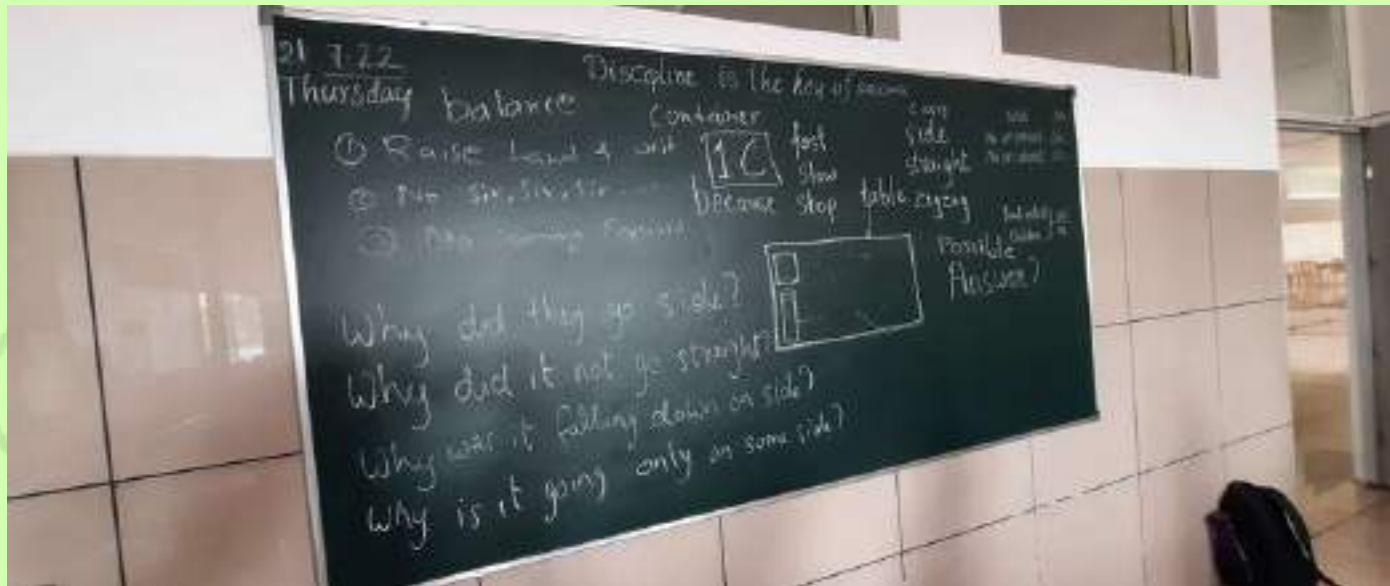 21.7.22
Thursday
Discipline is the key of
balance
Container
① Raise hand &
② No Sir, Sir, Sir...
③
1C
because
fast
slow
stop
side
straight
zigzag
table
Possible
Answer?
Why did they go side?
Why did it not go straight?
Why was it falling down on side?
Why is it going only on some side?